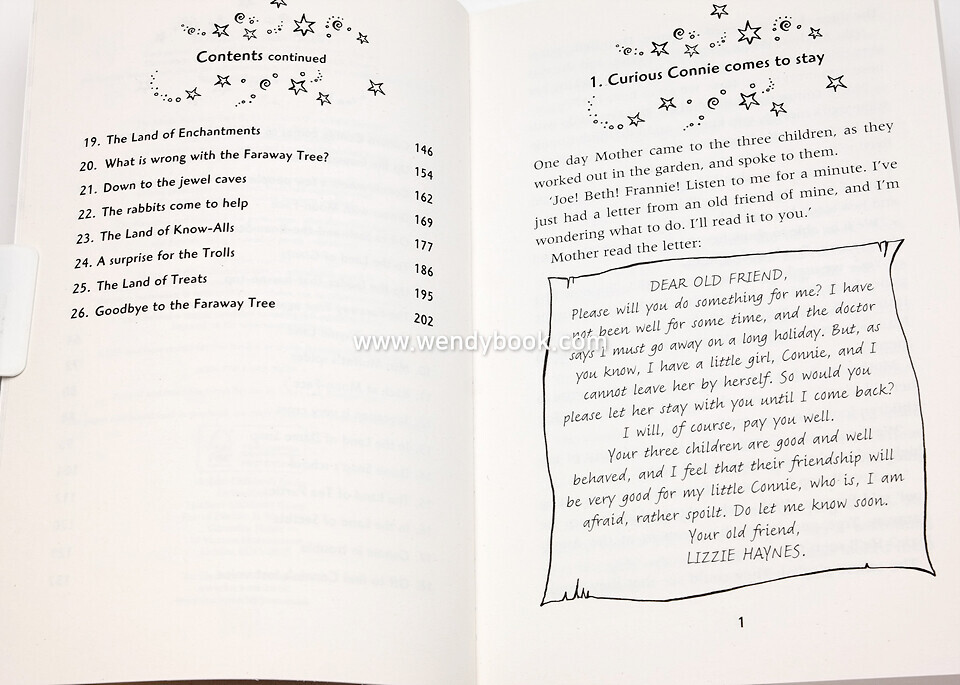 Contents continued
19. The Land of Enchantments 146
20. What is wrong with the Faraway Tree? 154
21. Down to the jewel caves 162
22. The rabbits come to help 169
23. The Land of Know-Alls 177
24. A surprise for the Trolls 186
25. The Land of Treats 195
26. Goodbye to the Faraway Tree 202
www.wendybook.com
1. Curious Connie comes to stay
One day Mother came to the three children, as they
worked out in the garden, and spoke to them.
'Joe! Beth! Frannie! Listen to me for a minute. I've
just had a letter from an old friend of mine, and I'm
wondering what to do. I'll read it to you.'
Mother read the letter:
DEAR OLD FRIEND,
Please will you do something for me? I have
not been well for some time, and the doctor
says I must go away on a long holiday. But, as
you know, I have a little girl, Connie, and I
cannot leave her by herself. So would you
please let her stay with you until I come back?
I will, of course, pay you well.
Your three children are good and well
behaved, and I feel that their friendship will
be very good for my little Connie, who is, I am
afraid, rather spoilt. Do let me know soon.
Your old friend,
LIZZIE HAYNES.
1